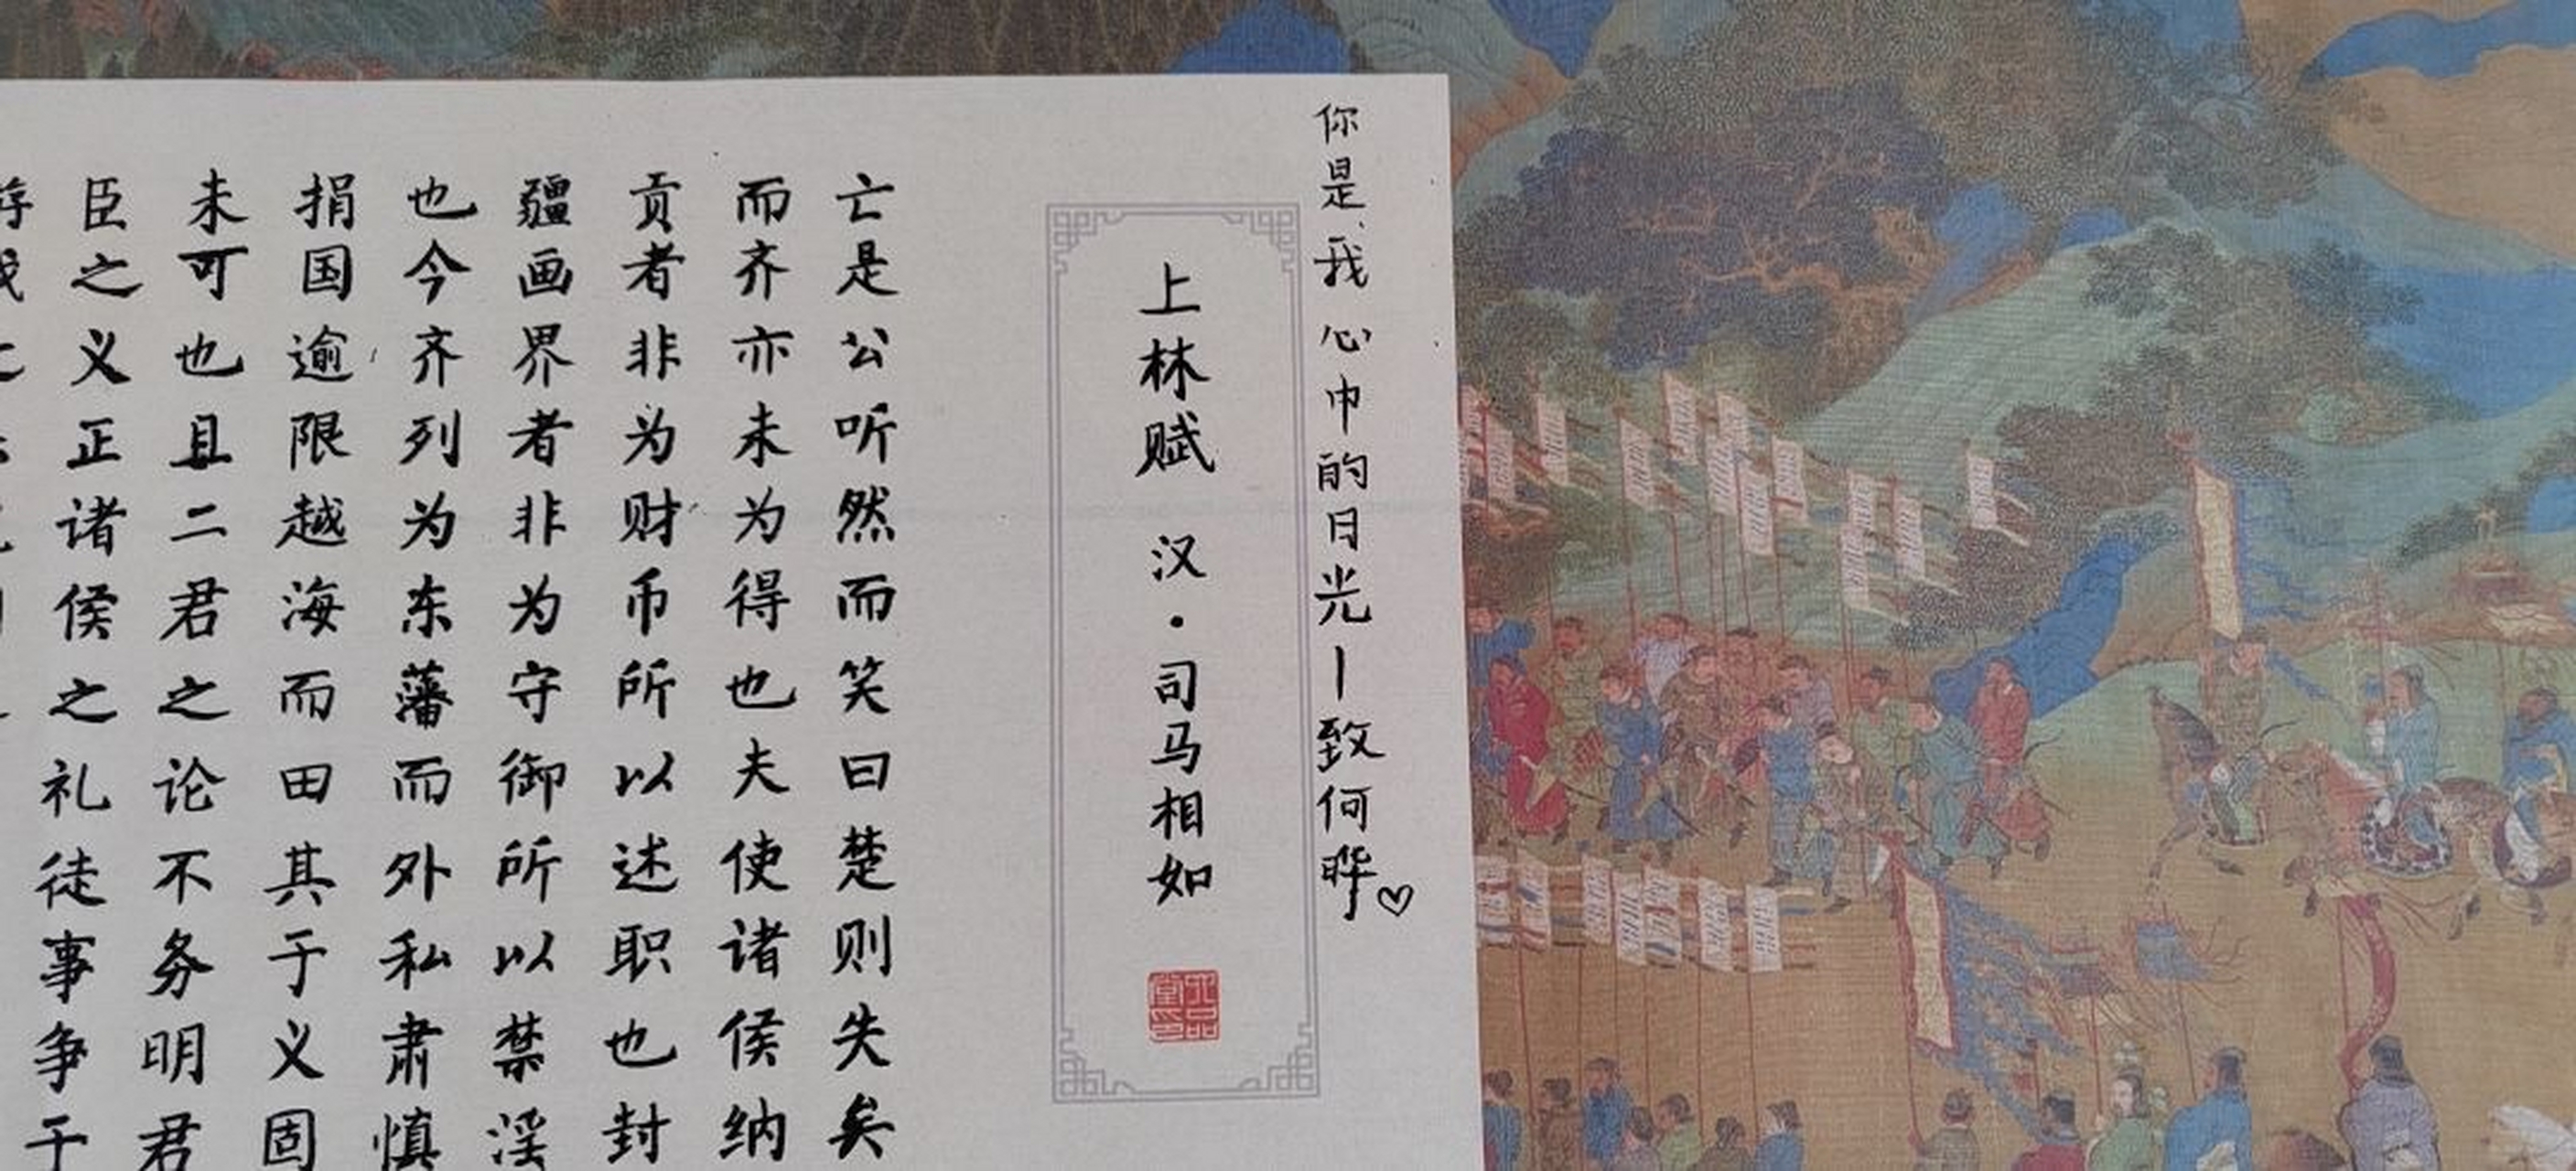 你是我心中的日光—致何晔♡
上林赋 汉·司马相如
亡是公听然而笑曰楚则失矣
而齐亦未为得也夫使诸侯纳
贡者非为财币所以述职也封
疆画界者非为守御所以禁淫
也今齐列为东藩而外私肃慎
捐国逾限越海而田其于义固
未可也且二君之论不务明君
臣之义正诸侯之礼徒事争于